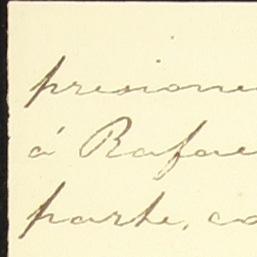 presione
á Rafae
parte, co